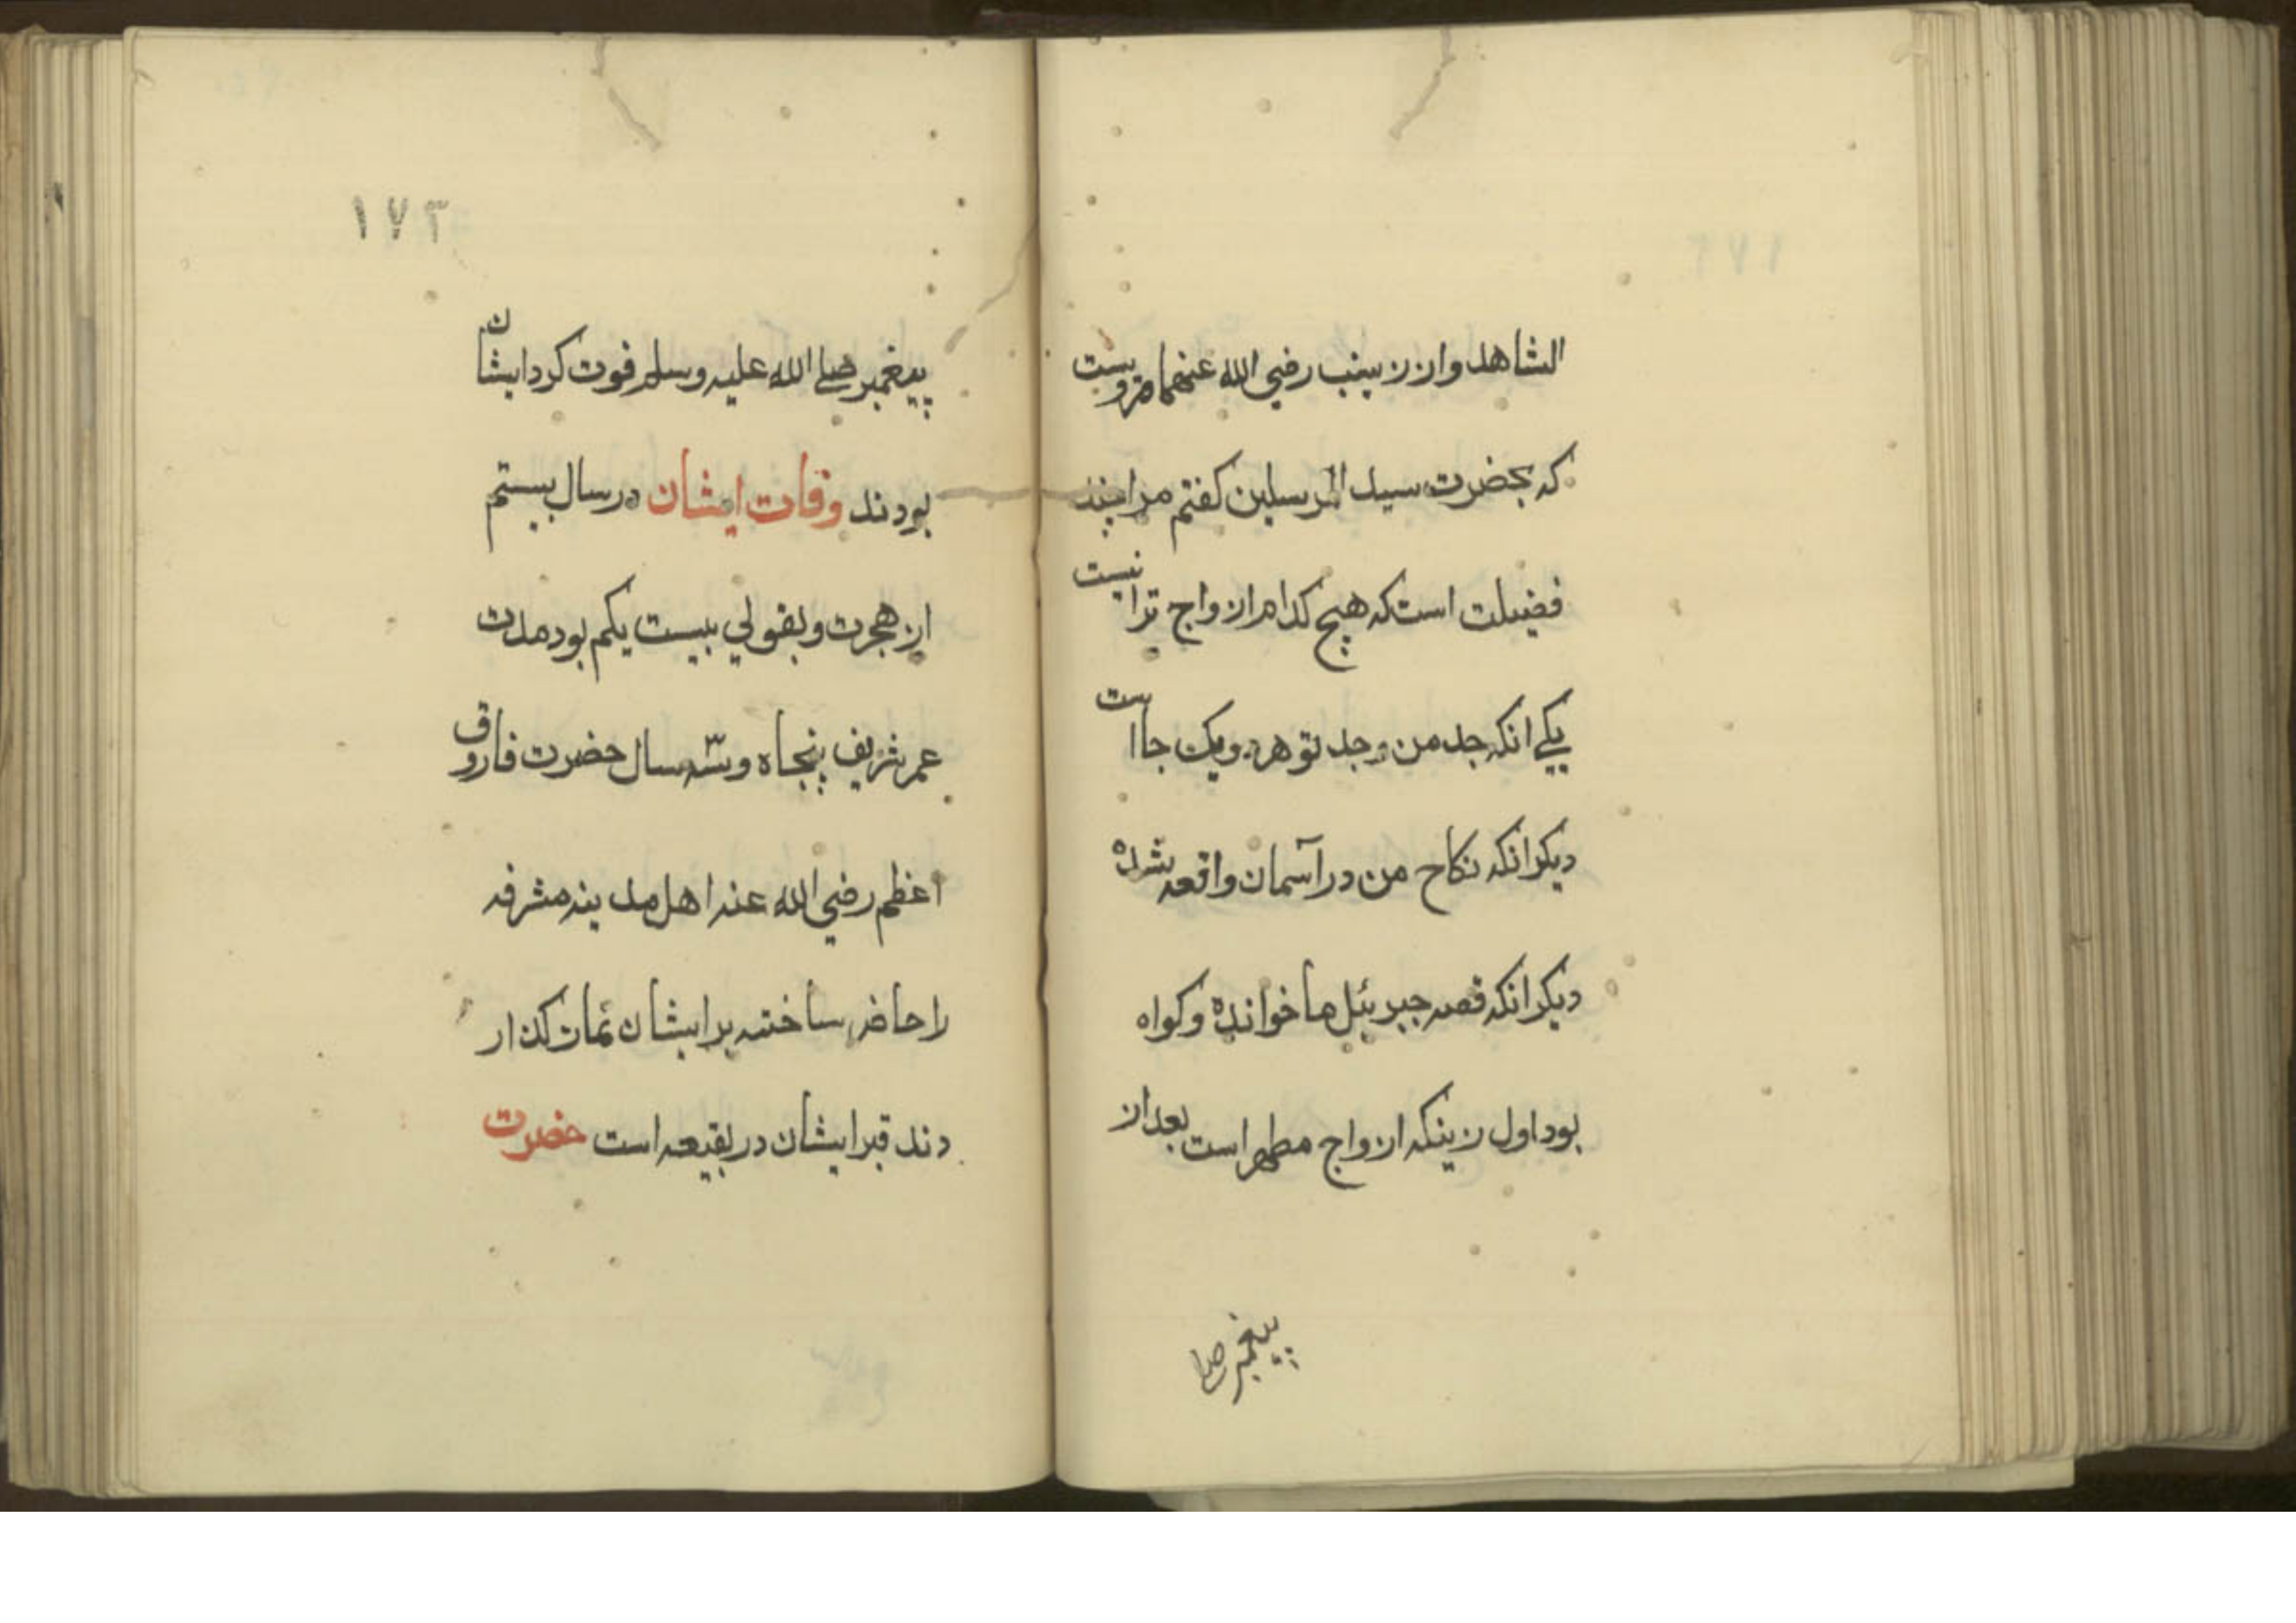 الشاهد واز زینب رضي الله عنهما مرویست
که بحضرت سید المرسلین کفتم مرا چند
فضیلت است که هیچ کدام ازواج ترا نیست
یکے انکه جد من وجد تو هردو یک جا است
دیکر انکه نکاح من در آسمان واقعه شده
دیکر انکه قصه جبرئیل ما خوانده وکواه
بود اول زینکه ازواج مطهر است بعد از
پیغمبر صلے
۱۷۳
پیغمبر صلے الله علیه وسلم فوت کرد ایشان
بودند وفات ایشان در سال بیستم
از هجرت و بقولي بیست یکم بود مدت
عمر شریف پنجاه و سّه سال حضرت فاروق
اعظم رضي الله عنه اهل مدینه مشرفه
را حاضر ساخته بر ایشان نماز کذار
دند قبر ایشان در بقیعه است حضرت